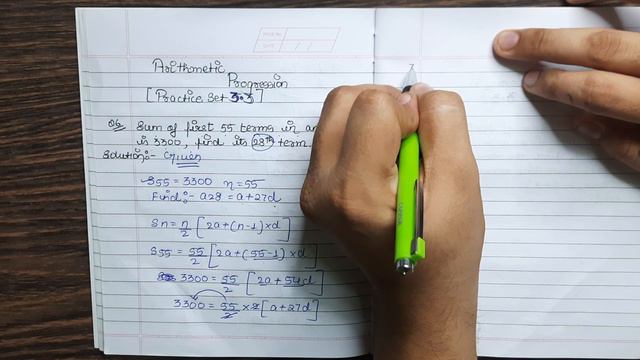 Arithmetic
Progression
[Practice Set 3.3]
Q6 Sum of first 55 terms in an
is 3300, find its 28th term
Solution:- Given
S55 = 3300 n = 55
Find:- a28 = a+27d
Sn = n/2 [2a+(n-1)×d]
S55 = 55/2 [2a+(55-1)×d]
3300 = 55/2 [2a+54d]
3300 = 55/2 ×2[a+27d]